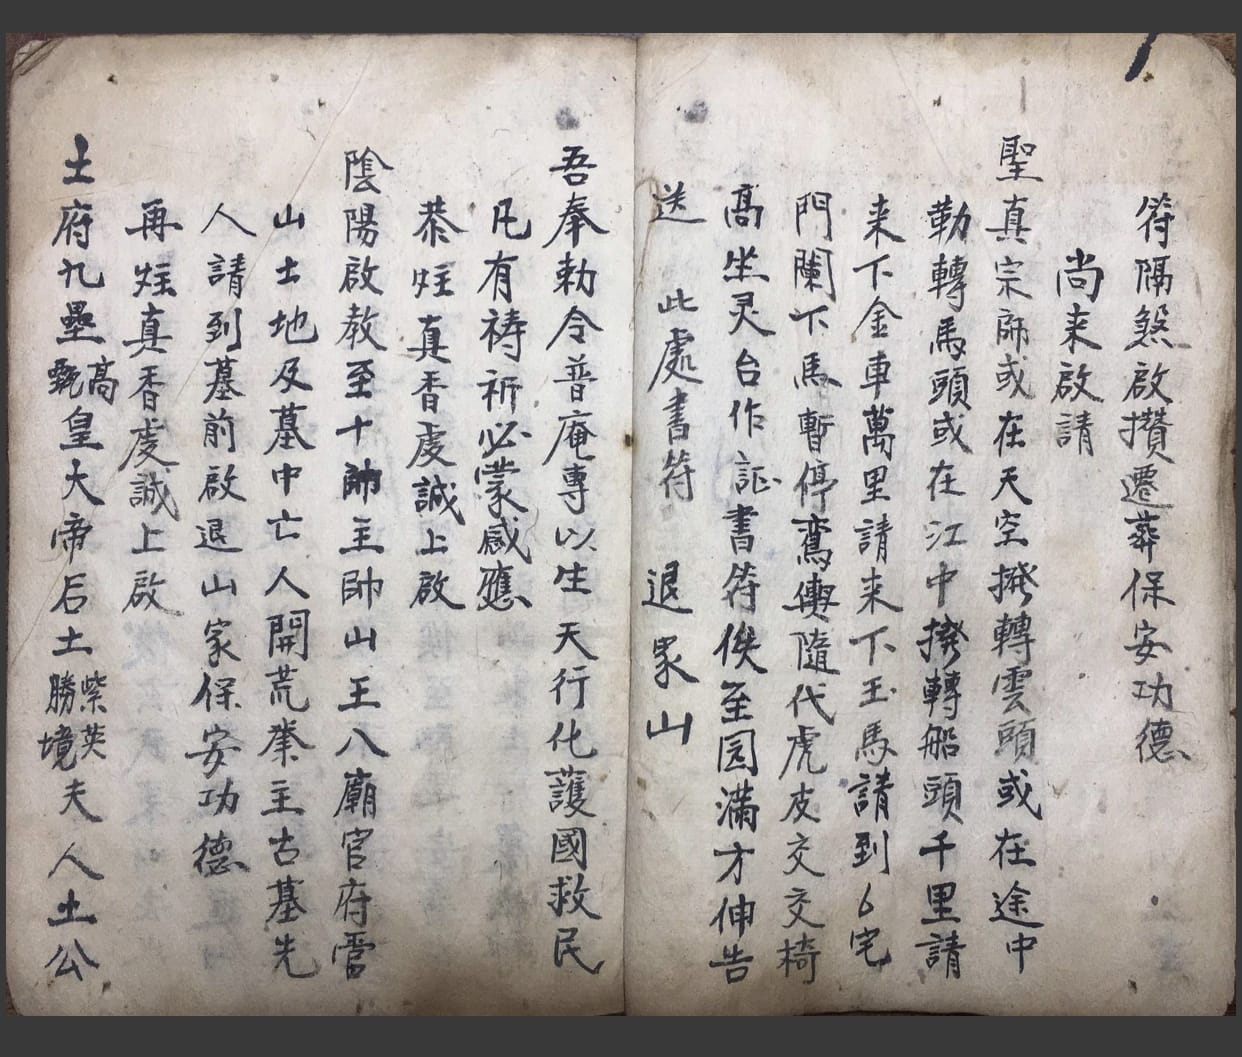 符隔煞啟攢遷葬保安功德
尚来啟請
聖真宗師或在天空撥轉雲頭或在途中
勒轉馬頭或在江中撥轉船頭千里請
来下金車萬里請来下玉馬請到宅
門闌下馬暫停鸞輿隨代虎皮交交椅
高坐灵台作証書符俟至园滿才伸告
送 此處書符 退冢山
吾奉勅令普庵專以生天行化護國救民
凡有祷祈必蒙感應
恭炷真香虔誠上啟
陰陽啟教至十帥主帥山王八廟官府雷
山土地及墓中亡人開荒拳主古墓先
人請到墓前啟退山家保安功德
再炷真香虔誠上啟
土府九壘高甄皇大帝后土紫英勝境夫人土公